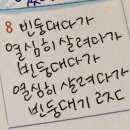 8 빈둥대다가
열심히 살려다가
빈둥대다가
열심히 살려다가
빈둥대기 로고침